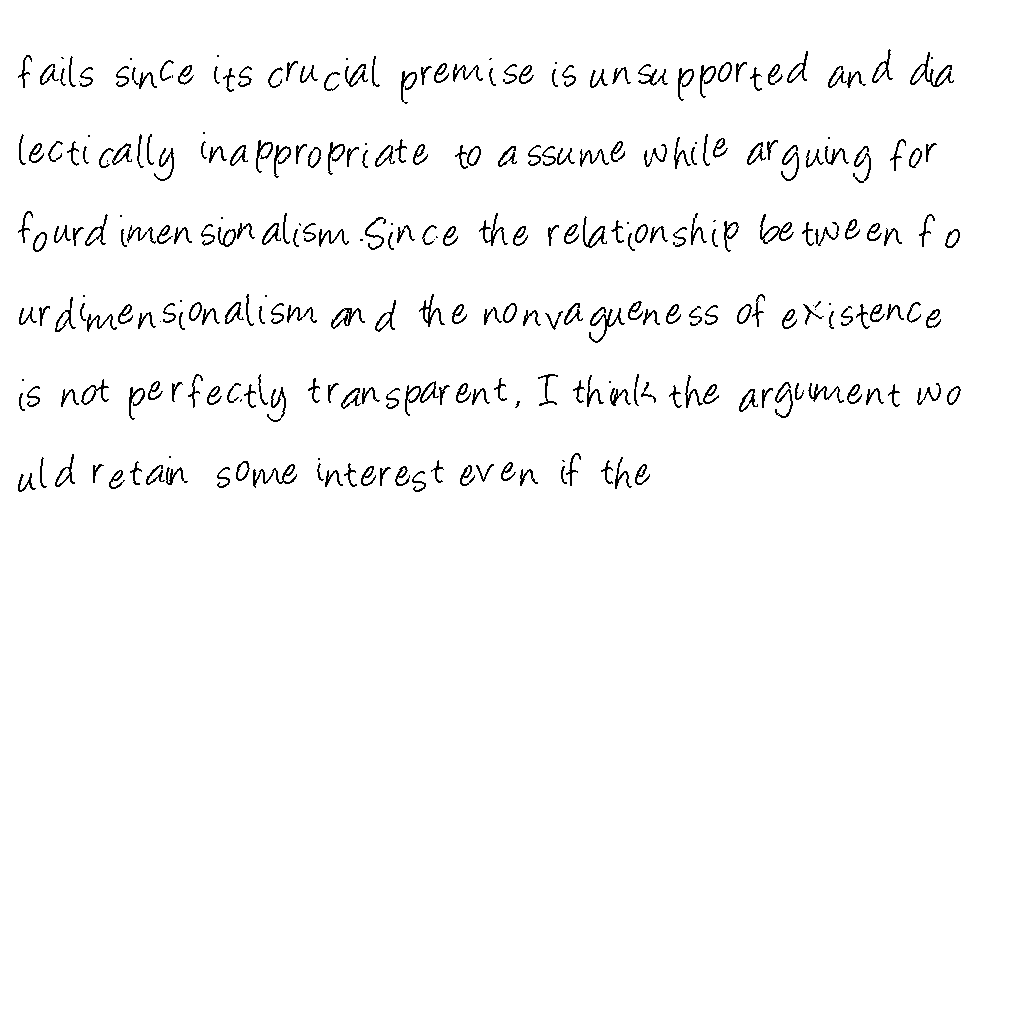 fails since its crucial premise is unsupported and dia
lectically inappropriate to assume while arguing for
fourdimensionalism.Since the relationship between fo
urdimensionalism and the nonvagueness of existence
is not perfectly transparent, I think the argument wo
uld retain some interest even if the